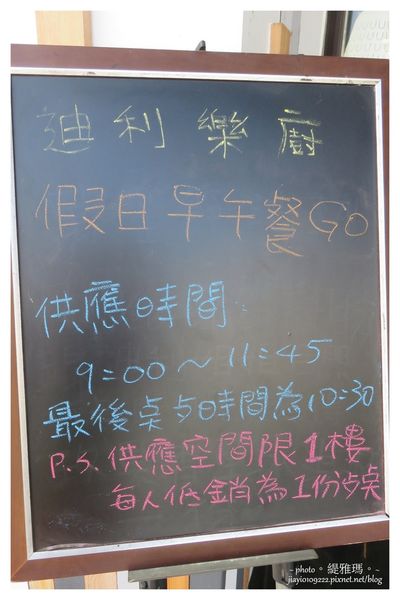 迪利樂廚
假日早午餐GO
供應時間:
9:00～11:45
最後桌点時間為10:30
P.S.供應空間限1樓
每人低銷為1份点桌
~ photo。緹雅瑪。~
jiayio109222.pixnet.net/blog